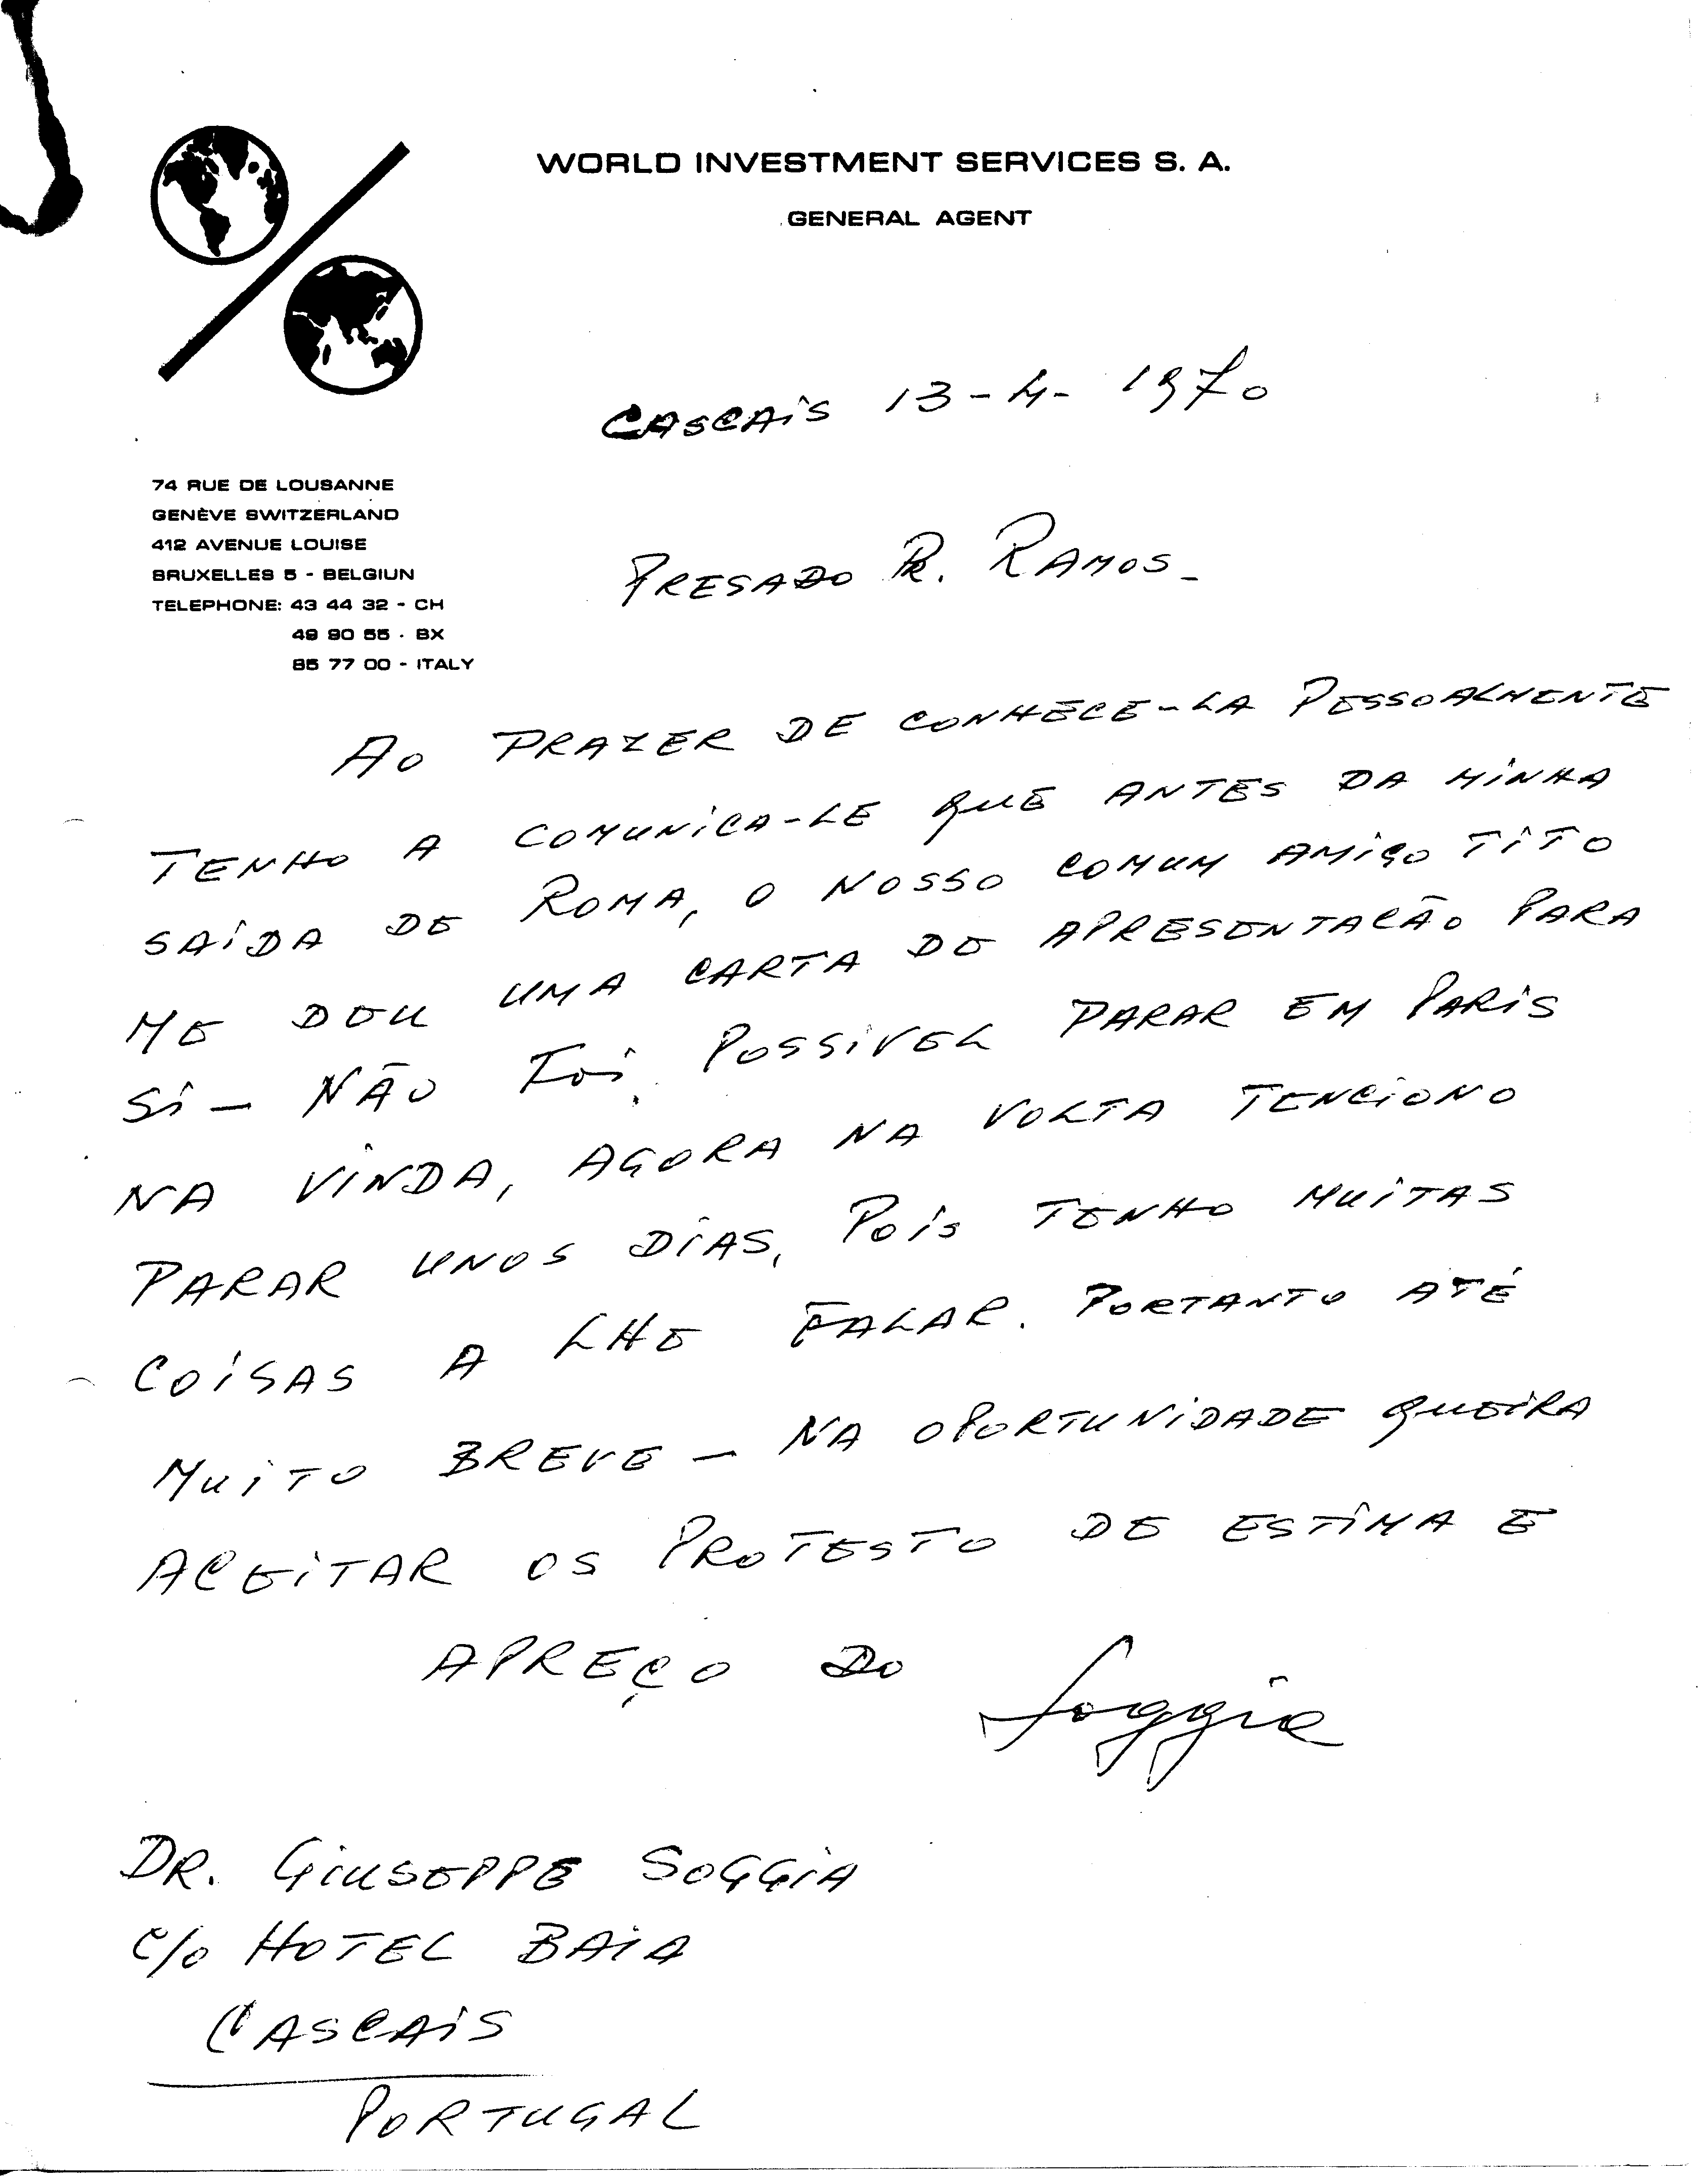 WORLD INVESTMENT SERVICES S. A.
GENERAL AGENT
CASCAIS 13-4-1970
74 RUE DE LOUSANNE
GENÈVE SWITZERLAND
412 AVENUE LOUISE
BRUXELLES 5 - BELGIUN
TELEPHONE: 43 44 32 - CH
49 90 55 - BX
85 77 00 - ITALY
PRESADO RAMOS-
AO PRAZER DE CONHECE-LA PESSOALMENTE
TENHO A COMUNICA-LE QUE ANTES DA MINHA
SAÍDA DE ROMA, O NOSSO COMUM AMIGO TITO
ME DEU UMA CARTA DE APRESENTACÃO PARA
SI - NÃO FOI POSSIVEL PARAR EM PARIS
NA VINDA, AGORA NA VOLTA TENCIONO
PARAR UNOS DIAS, POIS TENHO MUITAS
COISAS A LHE FALAR. PORTANTO ATÉ
MUITO BREVE - NA OPORTUNIDADE QUEIRA
ACEITAR OS PROTESTO DE ESTIMA E
APREÇO DO Soggia
DR. GIUSEPPE SOGGIA
C/O HOTEL BAIA
CASCAIS
PORTUGAL